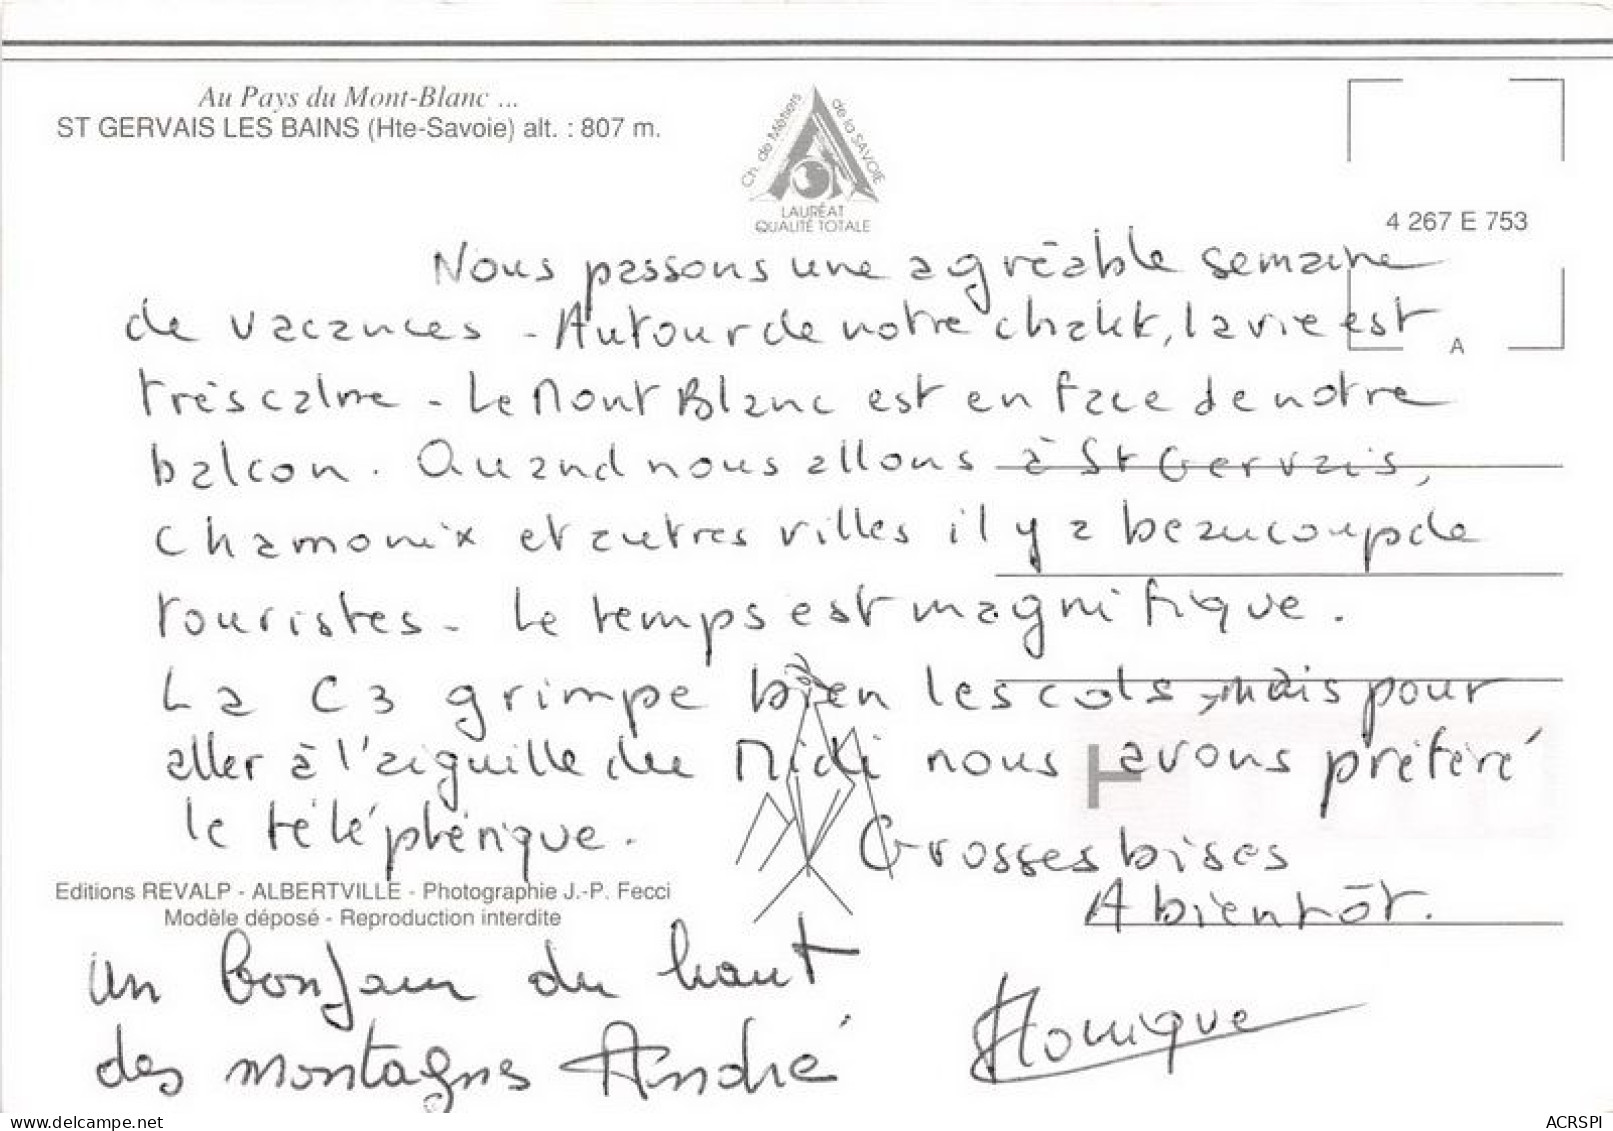 Au Pays du Mont-Blanc ...
ST GERVAIS LES BAINS (Hte-Savoie) alt. : 807 m.
Ch. de Métiers de la SAVOIE
LAURÉAT
QUALITÉ TOTALE
4 267 E 753
A
Nous passons une agréable semaine
de vacances - Autour de notre chalet, la vie est
très calme - Le Mont Blanc est en face de notre
balcon. Quand nous allons à St Gervais,
Chamonix et autres villes il y a beaucoup de
touristes - Le temps est magnifique.
La C3 grimpe bien les cols, mais pour
aller à l'aiguille du Midi nous avons préféré
le téléphérique.
Grosses bises
A bientôt.
Editions REVALP - ALBERTVILLE - Photographie J.-P. Fecci
Modèle déposé - Reproduction interdite
un bonjour du haut
des montagnes André
Monique
delcampe.net
ACRSPI